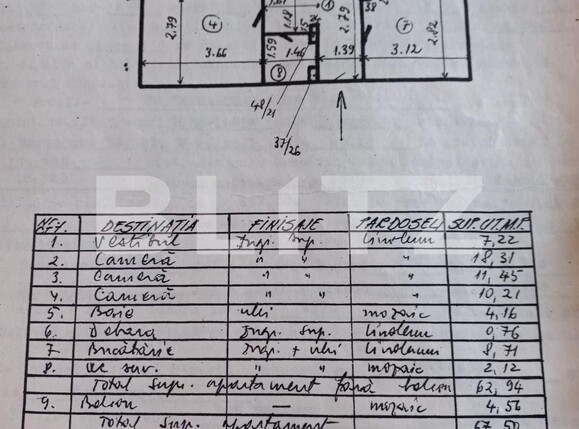 2.79
4
3.66
1.18
1
1.59
1.46
8
2.79
1.39
38
7
3.12
2.82
48/21
37/26
BLITZ
DESTINAȚIA FINISAJE PARDOSELI SUP.UT.M.P.
1. Vestibul Zugr. sup. linoleum 7,22
2. Cameră " " " 18,31
3. Cameră " " " 11,45
4. Cameră " " " 10,21
5. Baie ulei mozaic 4,16
6. Debara Zugr. sup. linoleum 0,76
7 Bucătărie Zugr. + ulei linoleum 8,71
8. Wc serv. " " mozaic 2,12
Total sup. apartament fără balcon 62,94
9. Balcon — mozaic 4,56
Total sup. apartament 67,50